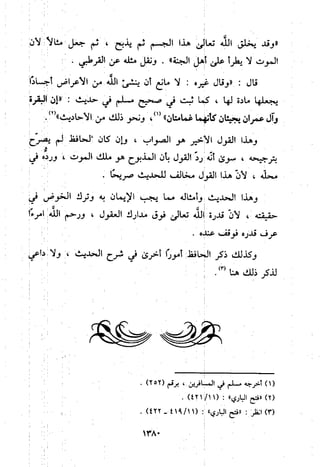 «وقد يخلق الله تعالى هذا الجسم ثم يذبح ، ثم جعل مثالاً لأن
الموت لا يطرأ على أهل الجنة» . ونقل مثله عن القرطبي .
قال : «وقال غيره : لا مانع أن ينشئ الله من الأعراض أجسادًا
يجعلها مادة لها ، كما ثبت في صحيح مسلم في حديث : «إن البقرة
وآل عمران يجيئان كأنهما غمامتان»(١)، ونحو ذلك من الأحاديث»(٢).
وهذا القول الأخير هو الصواب ، وإن كان الحافظ لم يصرّح
بترجيحه ، سوى أنّه ردّ القول بأن المذبوح هو ملك الموت ، وردّه في
محلّه ، لأنّ هذا القول مخالف للحديث صريحًا .
وهذا الحديث وأمثاله مما يجب الإيمان به وترك الخوض في
حقيقته ، لأنّ قدرة الله تعالى فوق مدارك العقول ، ورحم الله امرءًا
عرف قدره فوقف عنده .
وكذلك ذكر الحافظ أمورًا أخرى في شرح الحديث ، ولا داعي
لذكر ذلك هنا(٣).
(١) أخرجه مسلم في المسافرين ، برقم (٢٥٢) .
(٢) «فتح الباري» : (٤٢١/١١) .
(٣) انظر : «فتح الباري» : (٤١٩/١١ – ٤٢٢) .
١٣٨٠